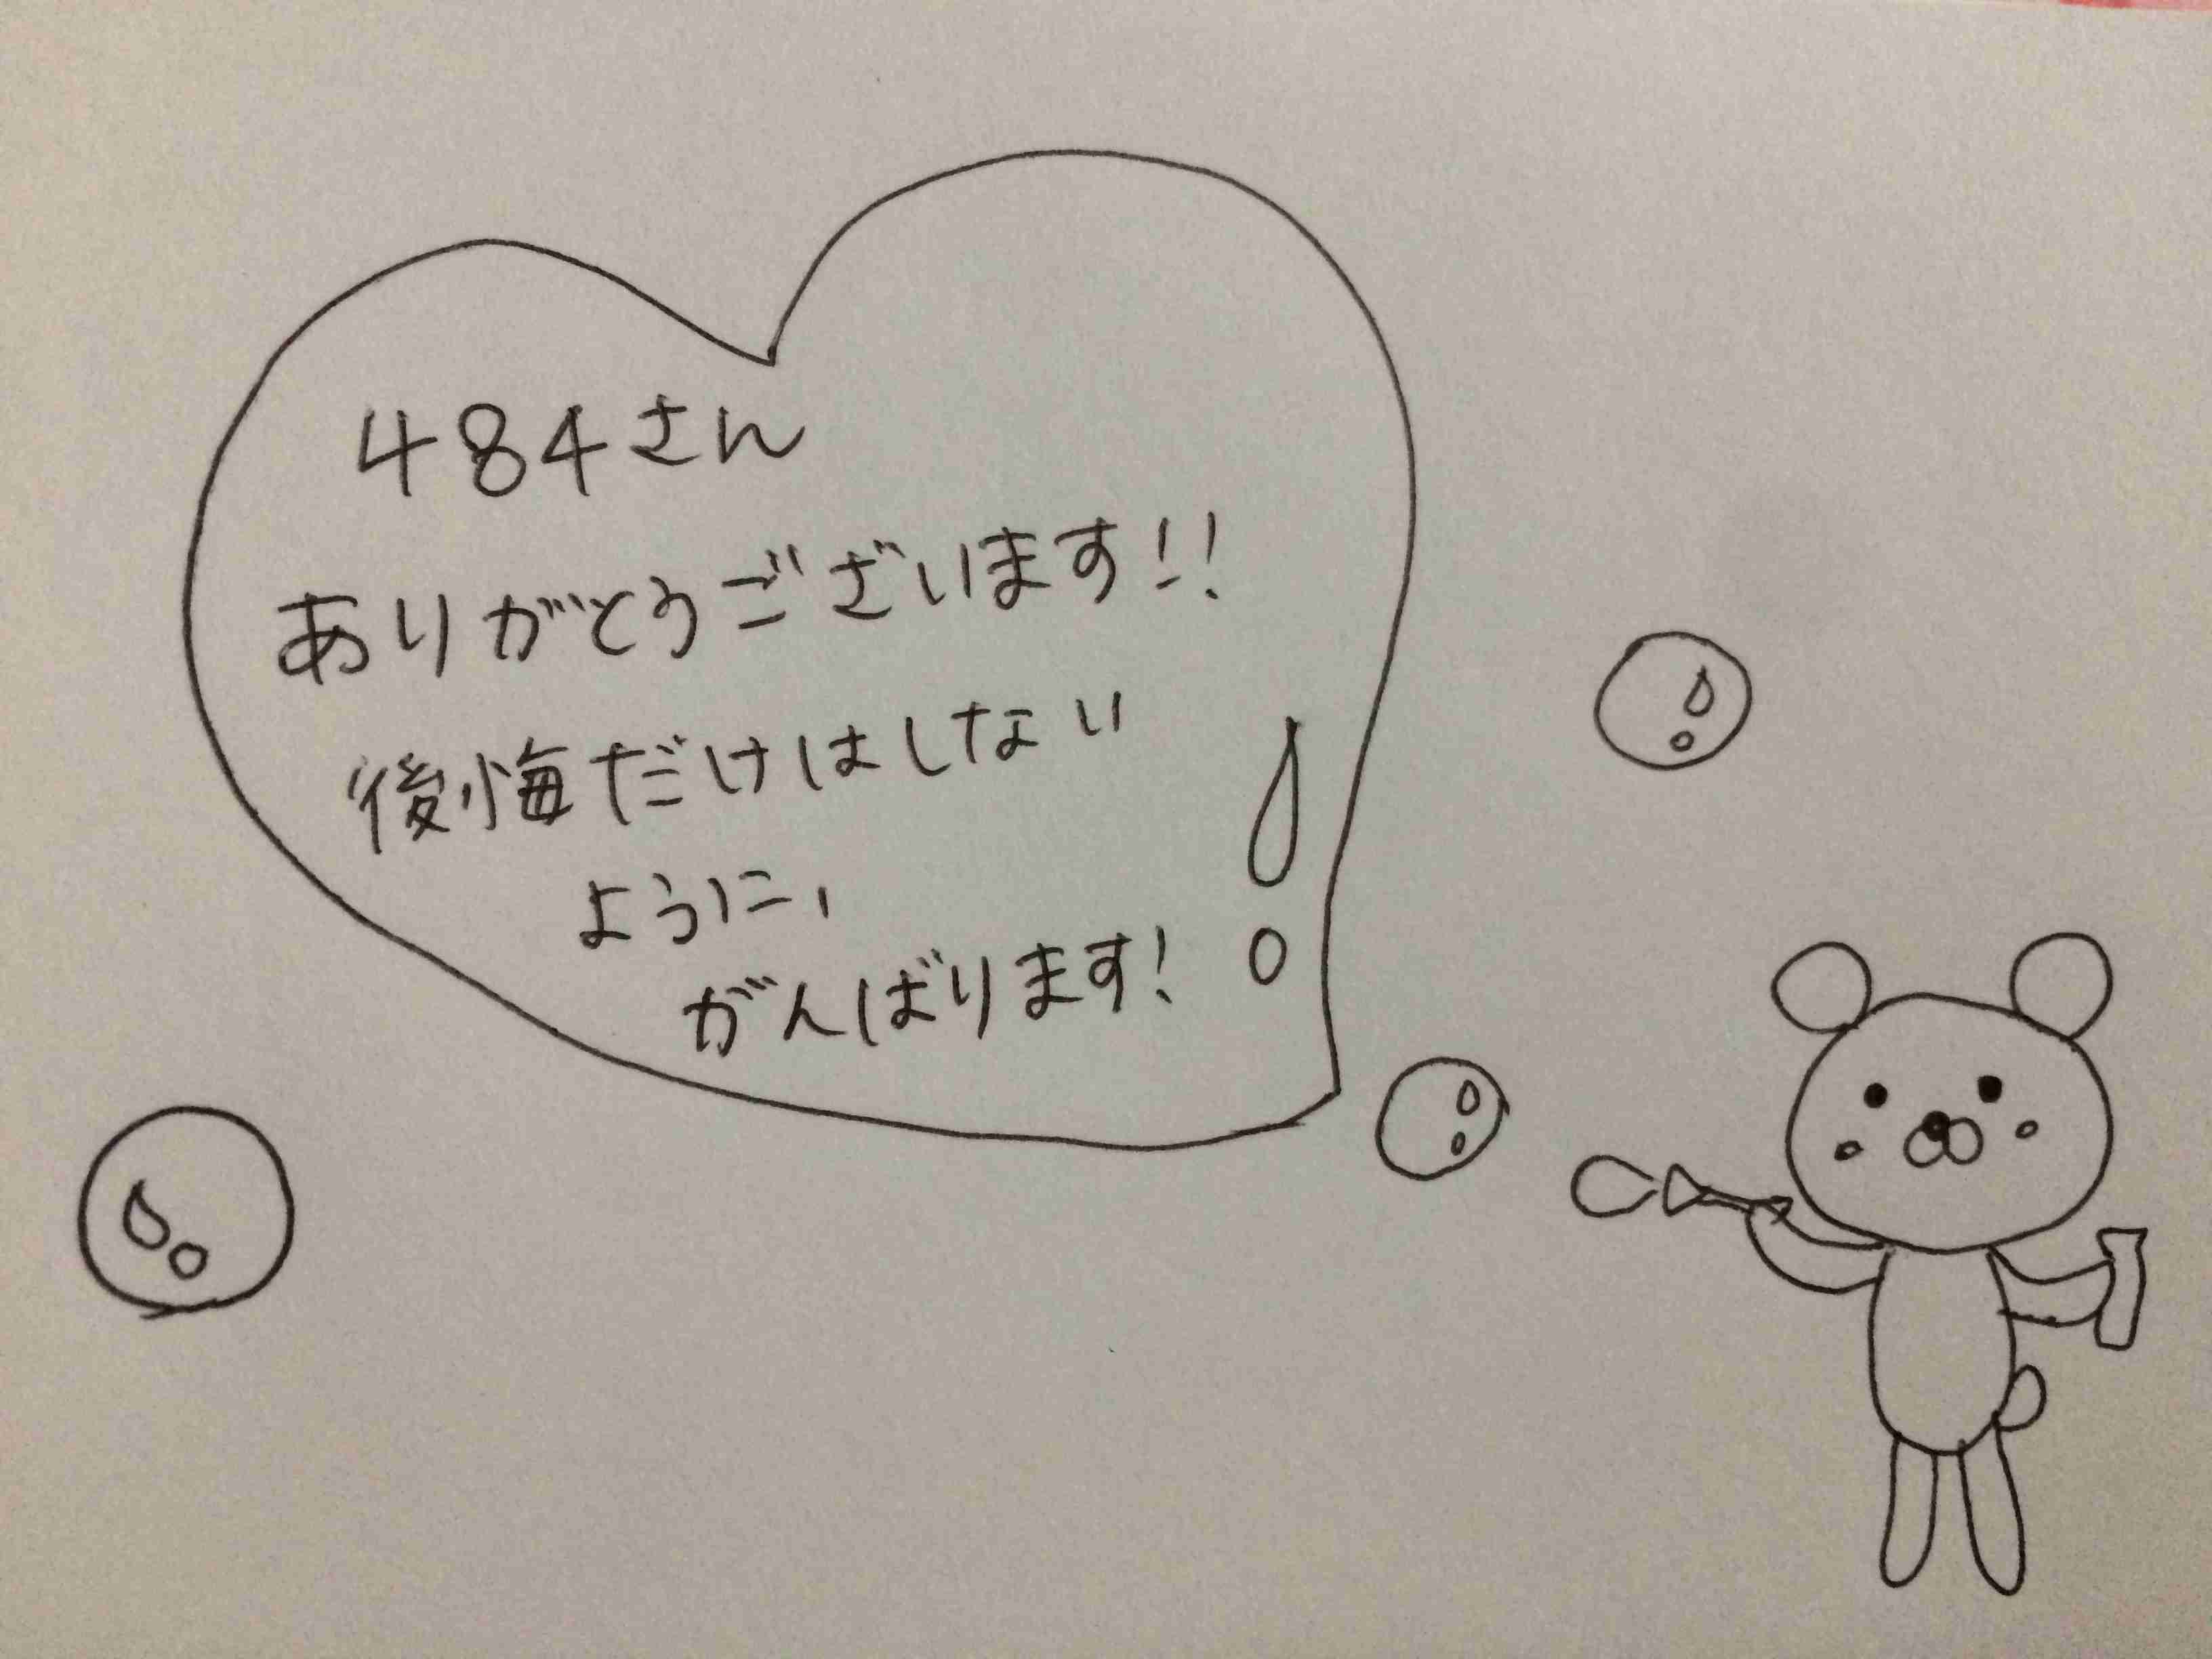 484さん
ありがとうございます!!
後悔だけはしない
ように,
がんばります!